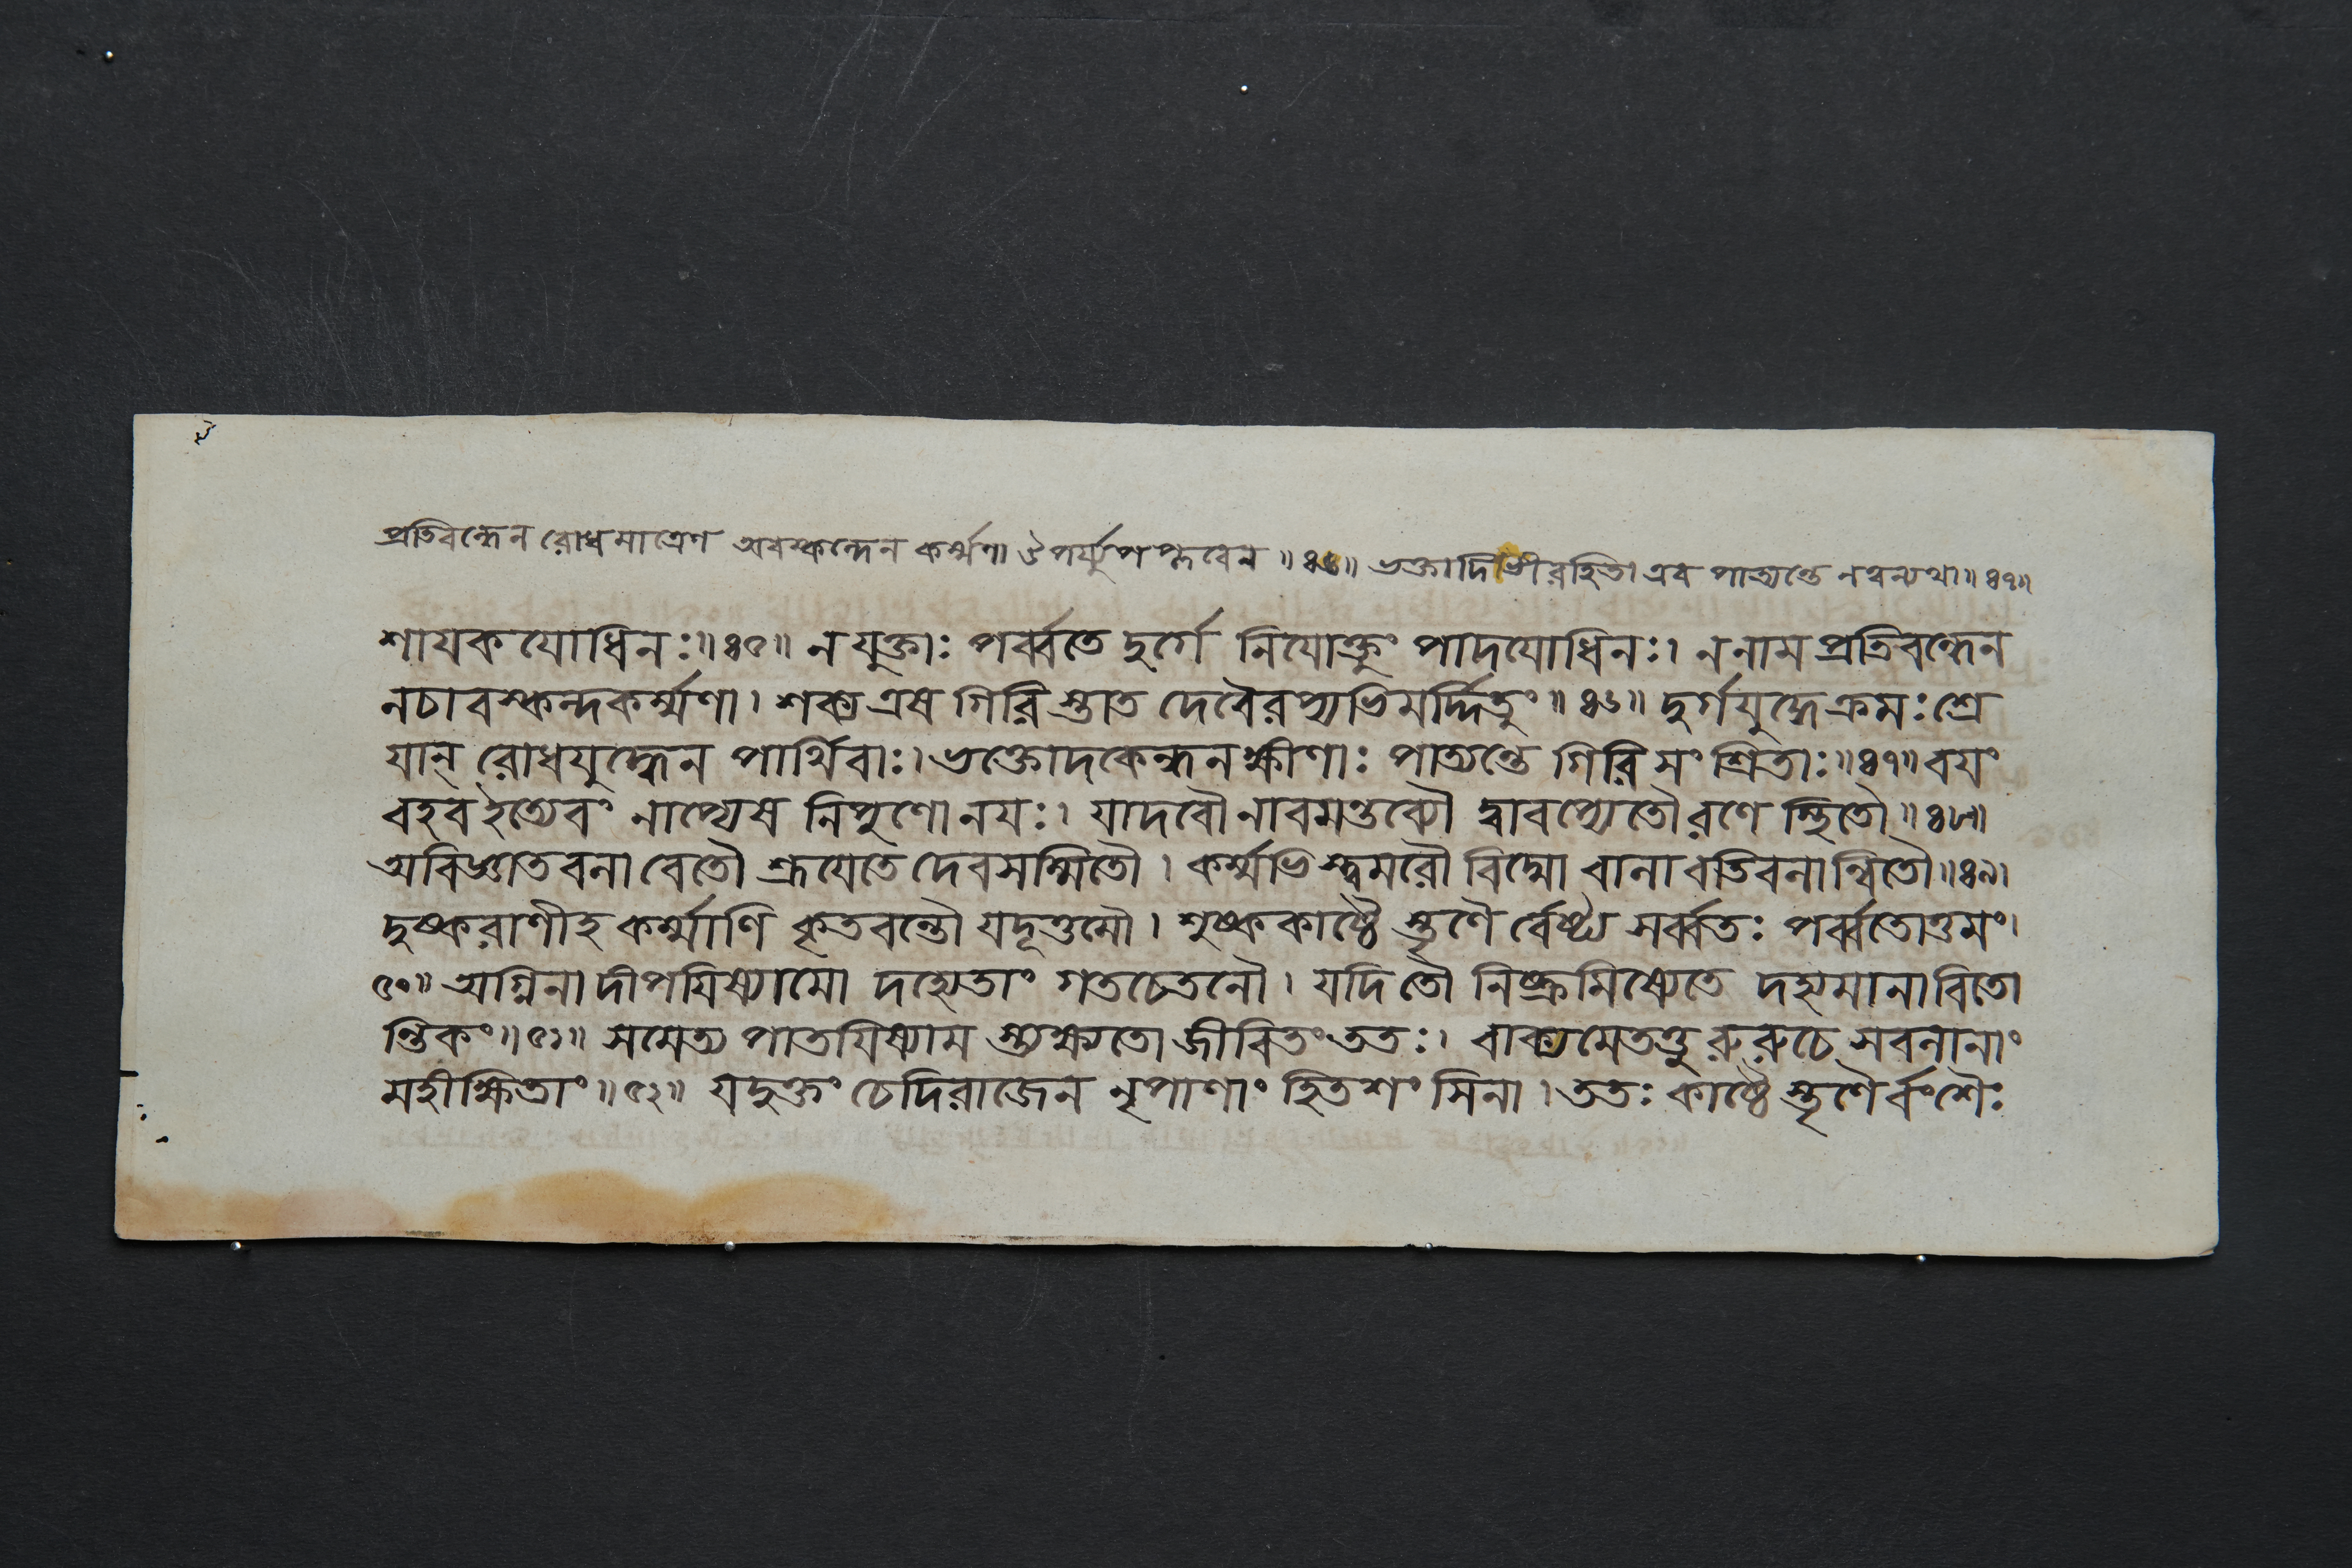 প্রতিবন্ধেন রোধমাত্রেণ অবস্কন্দেন কর্ম্মণা ঔপর্য্যুপপ্লবেন ॥ ৪৬॥ ভক্তাদিভীরহিতা এব পাত্যন্তে নত্বন্যথা॥ ৪৭॥
শায়কযোধিনঃ॥ ৪৫॥ নযুক্তাঃ পর্ব্বতে দুর্গে নিযোক্তুং পাদযোধিনঃ। ননাম প্রতিবন্ধেন
নচাবস্কন্দকর্ম্মণা। শক্য এষ গিরিস্তাত দেবৈরপ্যভিমর্দ্দিতুং॥ ৪৬॥ দুর্গযুদ্ধেক্রমঃশ্রে
যান্ রোধযুদ্ধেন পার্থিবাঃ। ভক্তোদকেন্ধনক্ষীণাঃ পাত্যন্তে গিরিসংশ্রিতাঃ॥ ৪৭॥ বযং
বহবইত্যেবং নাপ্যেষ নিপুণোনযঃ। যাদবৌনাবমন্তব্যৌ দ্বাবপ্যেতৌরণে স্থিতৌ॥ ৪৮॥
অবিজ্ঞাতবলাবেতৌ শ্রূযেতেদেবসম্মিতৌ। কর্ম্মভিস্ত্বমরৌ বিদ্মো বালাবতিবলান্বিতৌ॥ ৪৯।
দুষ্করাণীহ কর্ম্মাণি কৃতবন্তৌ যদূত্তমৌ। শুষ্ককাষ্ঠৈস্তৃণৈর্বেষ্ট্য সর্ব্বতঃ পর্ব্বতোত্তমং।
৫০॥ অগ্নিনা দীপযিষ্যামো দহ্যেতাং গতচেতনৌ। যদিতৌ নিষ্ক্রমিষ্যেতে দহ্যমানাবিতো
ন্তিকং॥ ৫১॥ সমেত্য পাতযিষ্যামস্ত্যক্ষ্যতো জীবিতংততঃ। বাক্যমেতত্তু রুরুচে সবলানাং
মহীক্ষিতাং॥ ৫২॥ যদুক্তং চেদিরাজেন নৃপাণাং হিতশংসিনা। ততঃ কাষ্ঠৈস্তৃণৈর্বংশৈঃ